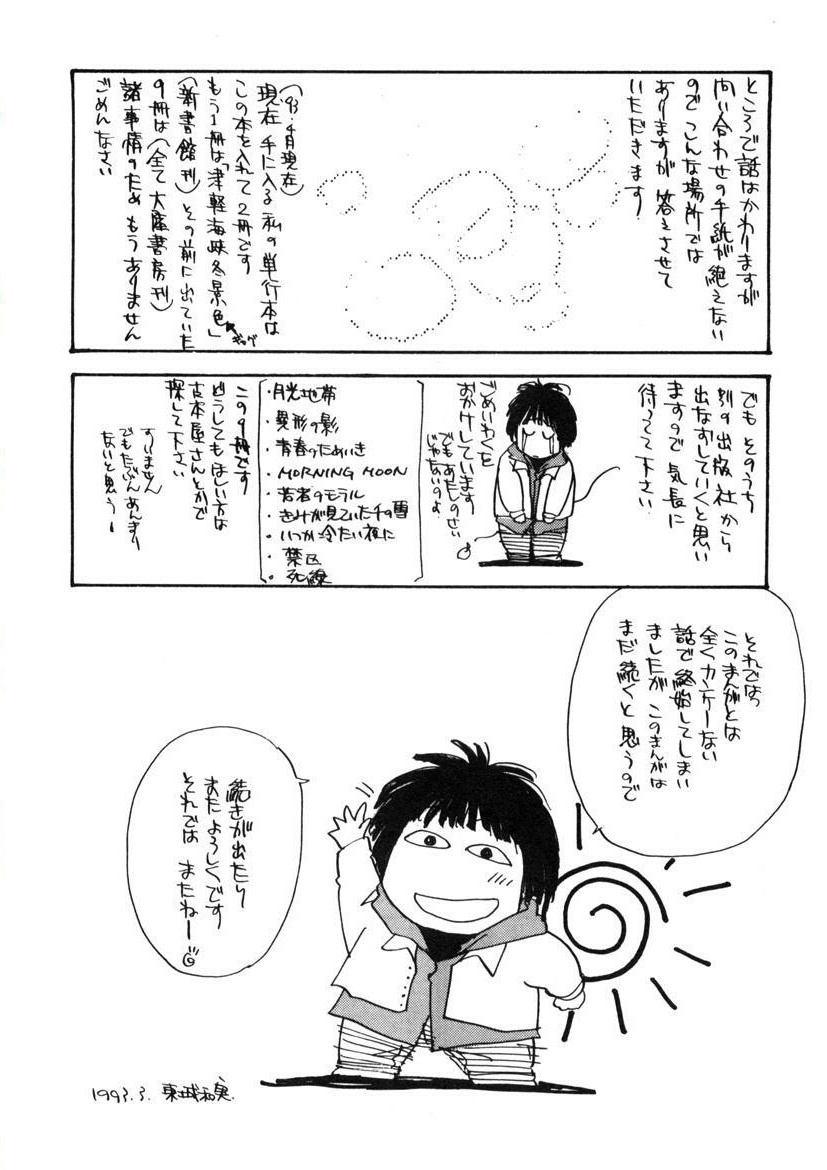 ところで話はかわりますが
問い合わせの手紙が絶えない
ので こんな場所では
ありますが 答えさせて
いただきます
('93.4月現在)
現在 手に入る 私の単行本は
この本を入れて2冊です
もう1冊は「津軽海峡冬景色」
ギャグ
(新書館刊) その前に出ていた
9冊は(全て大陸書房刊)
諸事情のため もうありません
ごめんなさい
でも そのうち
別の出版社から
出なおしていくと思い
ますので 気長に
待ってて下さい
ごめいわくを
おかけしています
でもあたしのせい
じゃないのよ
・月光地帯
・異形の影
・青春のためいき
・MORNING MOON
・若者のモラル
・きみが見ていた千の雪
・いつか冷たい夜に
・禁区
・死線
この9冊です
どうしてもほしい方は
古本屋さんとかで
探して下さい
すいません
でもたぶんあんまり
ないと思う!
それではっ
このまんがとは
全くカンケーない
話で終始してしまい
ましたが このまんがは
まだ続くと思うので
続きが出たり
またよろしくです
それでは またねー
1993.3. 東城和実